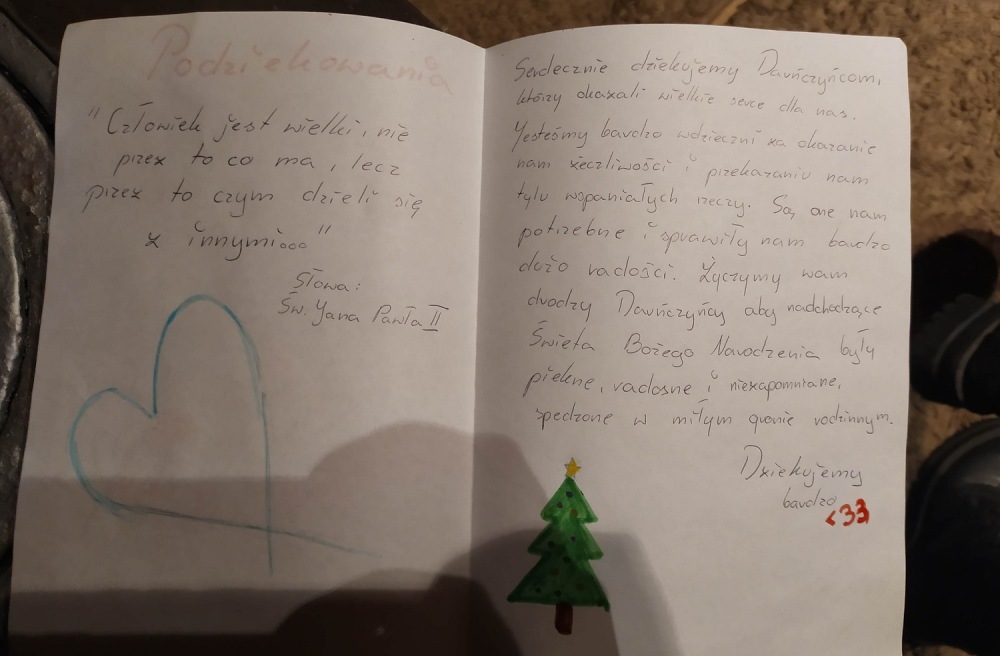 Podziekowania
"Człowiek jest wielki, nie
przez to co ma, lecz
przez to czym dzieli się
z innymi..."
Słowa:
Św. Jana Pawła II
Serdecznie dziekujemy Darńczyńcom,
którzy okazali wielkie serce dla nas.
Jesteśmy bardzo wdzieczni za okazanie
nam życzliwości i przekazaniu nam
tylu wspaniałych rzeczy. Są one nam
potrzebne i sprawiły nam bardzo
dużo radości. Życzymy wam
drodzy Darńczyńcy aby nadchodzące
Świeta Bożego Narodzenia były
piekne, radosne i niezapomniane,
spedzone w miłym gronie rodzinnym.
Dziekujemy
bardzo
<33